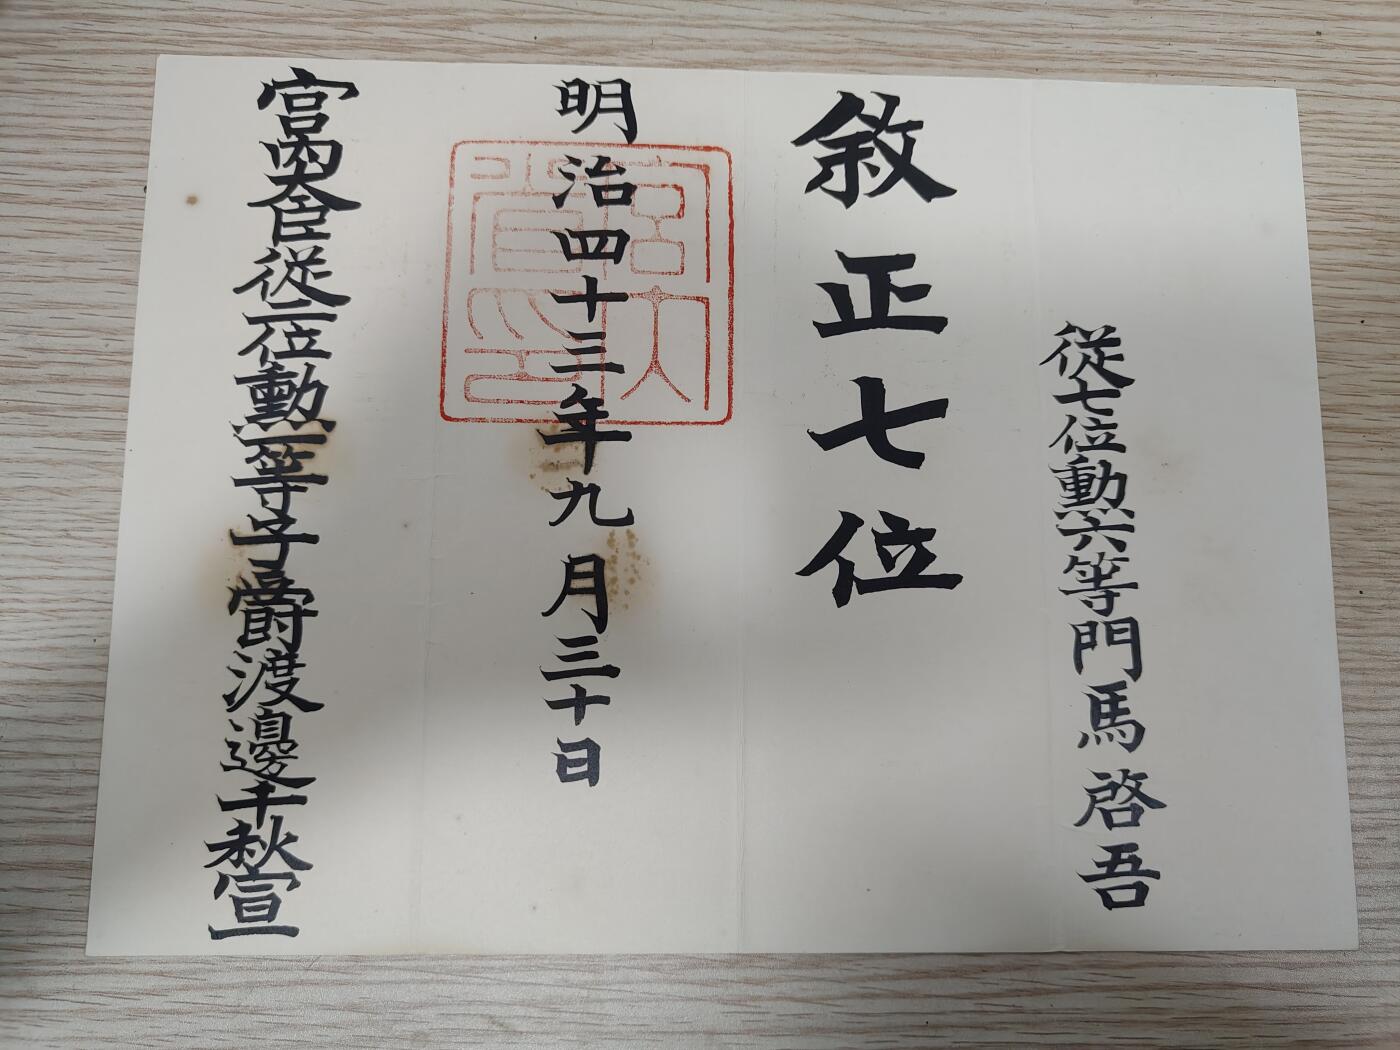 從七位勳六等門馬啓吾
敘正七位
明治四十三年九月三十日
宮內大臣從二位勳一等子爵渡邊千秋宣
宮內省印